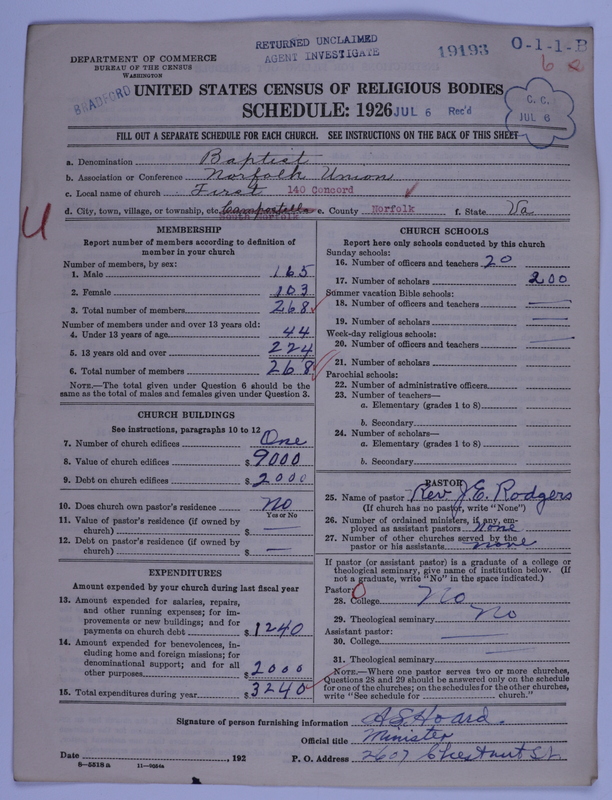 RETURNED UNCLAIMED
AGENT INVESTIGATE
19193 O-1-1-B
6
DEPARTMENT OF COMMERCE
BUREAU OF THE CENSUS
WASHINGTON
BRADFORD
UNITED STATES CENSUS OF RELIGIOUS BODIES
SCHEDULE: 1926 JUL 6 Rec'd
C. C.
JUL 6
FILL OUT A SEPARATE SCHEDULE FOR EACH CHURCH. SEE INSTRUCTIONS ON THE BACK OF THIS SHEET
a. Denomination Baptist
b. Association or Conference Norfolk Union
c. Local name of church First 140 Concord
d. City, town, village, or township, etc. Campostella South Norfolk e. County Norfolk f. State Va
MEMBERSHIP
Report number of members according to definition of member in your church
Number of members, by sex:
1. Male 165
2. Female 103
3. Total number of members 268
Number of members under and over 13 years old:
4. Under 13 years of age 44
5. 13 years old and over 224
6. Total number of members 268
NOTE.—The total given under Question 6 should be the same as the total of males and females given under Question 3.
CHURCH BUILDINGS
See instructions, paragraphs 10 to 12
7. Number of church edifices One
8. Value of church edifices $ 9000
9. Debt on church edifices $ 2000
10. Does church own pastor's residence No
Yes or No
11. Value of pastor's residence (if owned by church) $ —
12. Debt on pastor's residence (if owned by church) $ —
EXPENDITURES
Amount expended by your church during last fiscal year
13. Amount expended for salaries, repairs, and other running expenses; for improvements or new buildings; and for payments on church debt $ 1240
14. Amount expended for benevolences, including home and foreign missions; for denominational support; and for all other purposes $ 2000
15. Total expenditures during year $ 3240
CHURCH SCHOOLS
Report here only schools conducted by this church
Sunday schools:
16. Number of officers and teachers 20
17. Number of scholars 200
Summer vacation Bible schools:
18. Number of officers and teachers —
19. Number of scholars —
Week-day religious schools:
20. Number of officers and teachers —
21. Number of scholars
Parochial schools:
22. Number of administrative officers
23. Number of teachers—
a. Elementary (grades 1 to 8)
b. Secondary
24. Number of scholars—
a. Elementary (grades 1 to 8)
b. Secondary
PASTOR
25. Name of pastor Rev J. E. Rodgers
(If church has no pastor, write "None")
26. Number of ordained ministers, if any, employed as assistant pastors None
27. Number of other churches served by the pastor or his assistants none
If pastor (or assistant pastor) is a graduate of a college or theological seminary, give name of institution below. (If not a graduate, write "No" in the space indicated.)
Pastor:
28. College No
29. Theological seminary No
Assistant pastor:
30. College —
31. Theological seminary —
NOTE.—Where one pastor serves two or more churches, Questions 28 and 29 should be answered only on the schedule for one of the churches; on the schedules for the other churches, write "See schedule for church."
Signature of person furnishing information A S Hoard.
Official title Minister
Date , 192 P. O. Address 2607 Chestnut St.
8—5518a 11—9054a